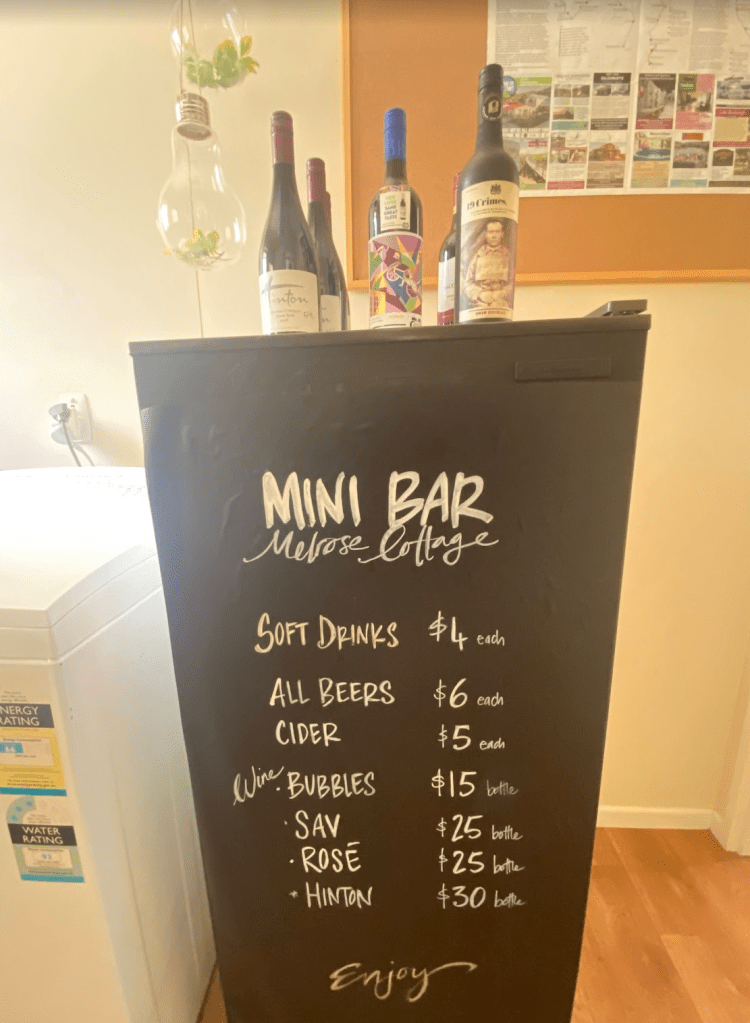 19 Crimes.
Hinton
MINI BAR
Melrose Cottage
SOFT DRINKS $4 each
ALL BEERS $6 each
CIDER $5 each
Wine · BUBBLES $15 bottle
· SAV $25 bottle
· ROSÉ $25 bottle
· HINTON $30 bottle
Enjoy
NERGY
RATING
WATER
RATING